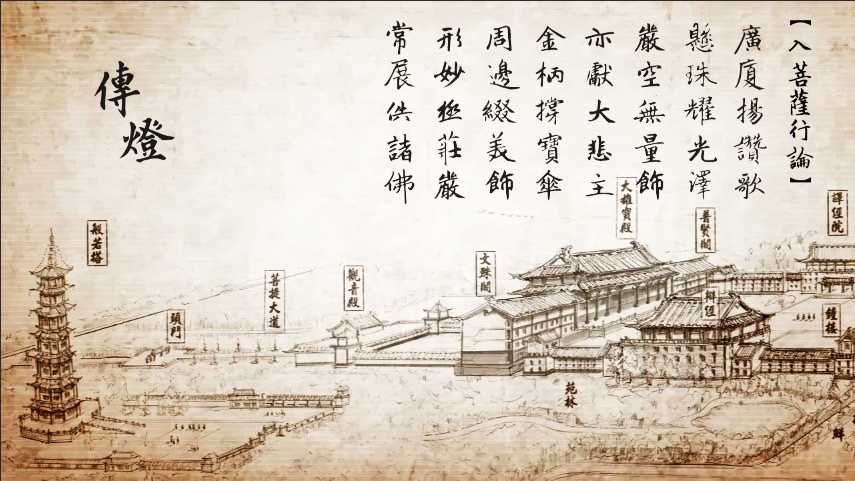 【入菩薩行論】
廣廈揚讚歌
懸珠耀光澤
嚴空無量飾
亦獻大悲主
金柄撐寶傘
周邊綴美飾
形妙極莊嚴
常展供諸佛
傳燈
譯經院
普賢閣
大雄寶殿
文殊閣
觀音殿
菩提大道
頭門
般若塔
鐘樓
苑林